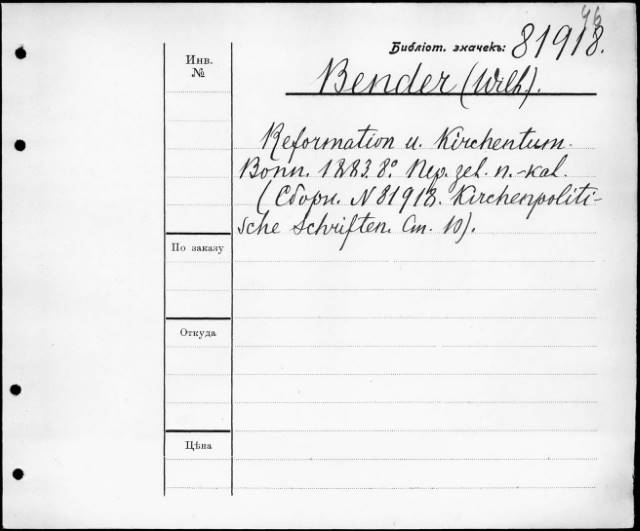 46
Библіот. значекъ: 81918.
Инв.
№
Bender (Wilh).
Reformation u. Kirchentum.
Bonn. 1883. 8º Пер. zel. п.-kal.
(Сборн. N 81918. Kirchenpoliti-
sche Schriften. Ст. 10).
По заказу
Откуда
Цѣна